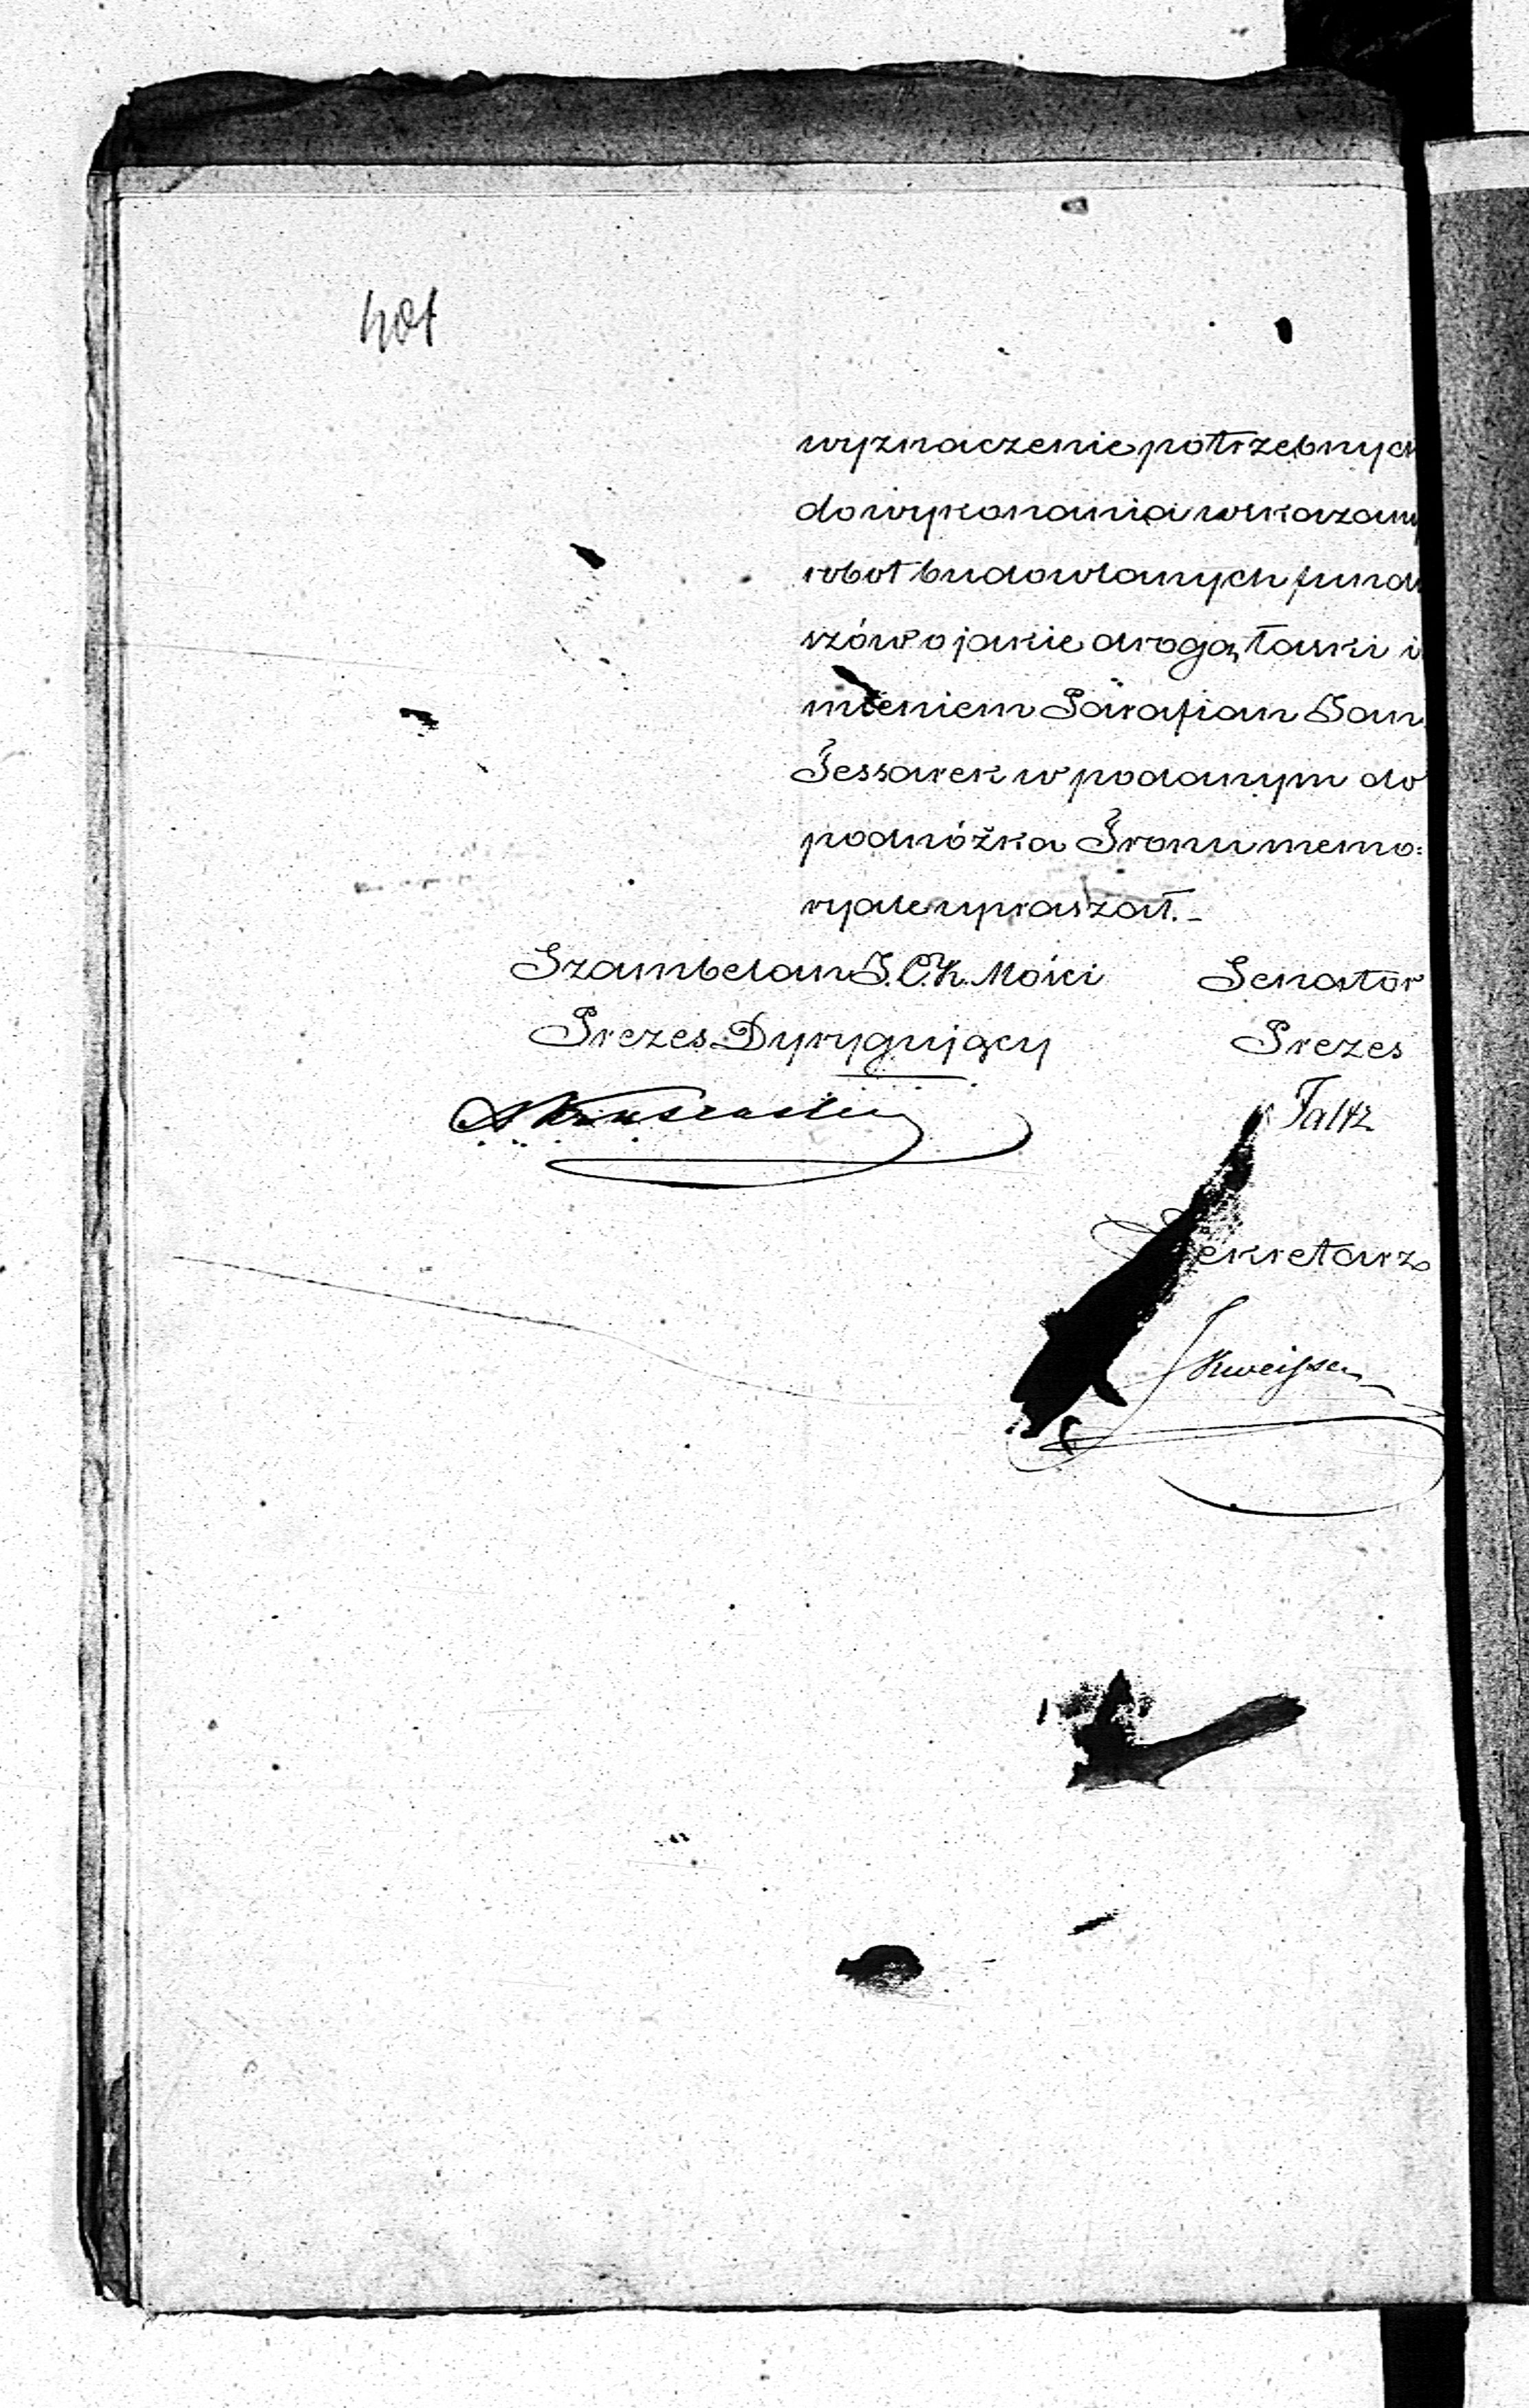 401
wyznaczenie potrzebnych
do wykonania wskazany
robot budowlanych fundu
szów o jakie drogą łaski i
mieniem Parafian Jan
Tessarek w podanym do
podnóżka Tronu memo:
ryale upraszał.-
Szambelan J.C.K. Mości Senator
Prezes Dyrygujący Prezes
Faltz
Sekretarz